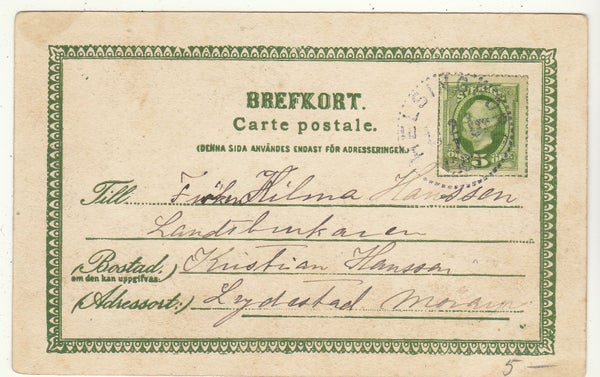 BREFKORT.
Carte postale.
(DENNA SIDA ANVÄNDES ENDAST FÖR ADRESSERINGEN.)
HELSINGBORG
5
Till Fröken Hilma Hansson
Landtbrukaren
(Bostad Kristian Hansson
om den kan uppgifvas:)
(Adressort:)
5 —